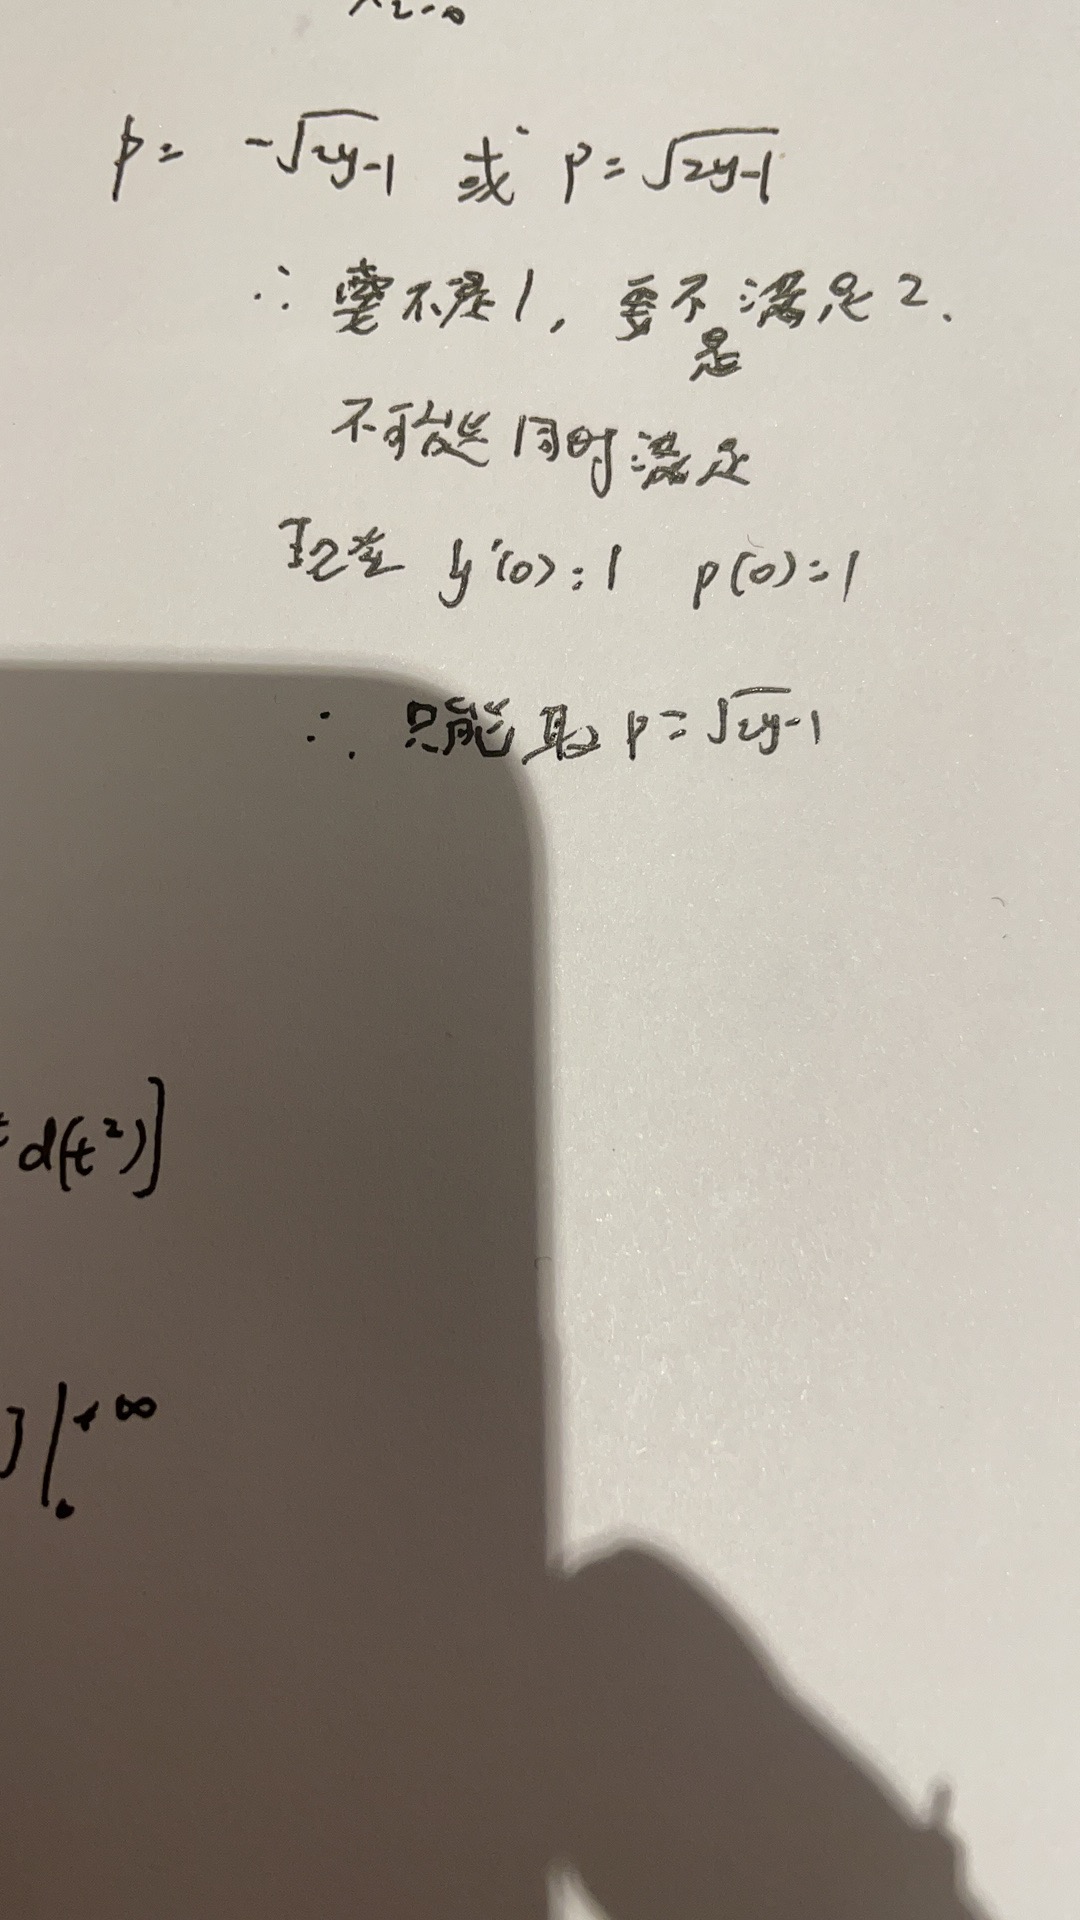 p = -√2y-1 或 p = √2y-1
∴ 要不是1, 要不满足2.
是
不可能同时满足
现在 y'(0)=1 p(0)=1
∴ 只能取 p = √2y-1
d(t²)]
]|+∞
0